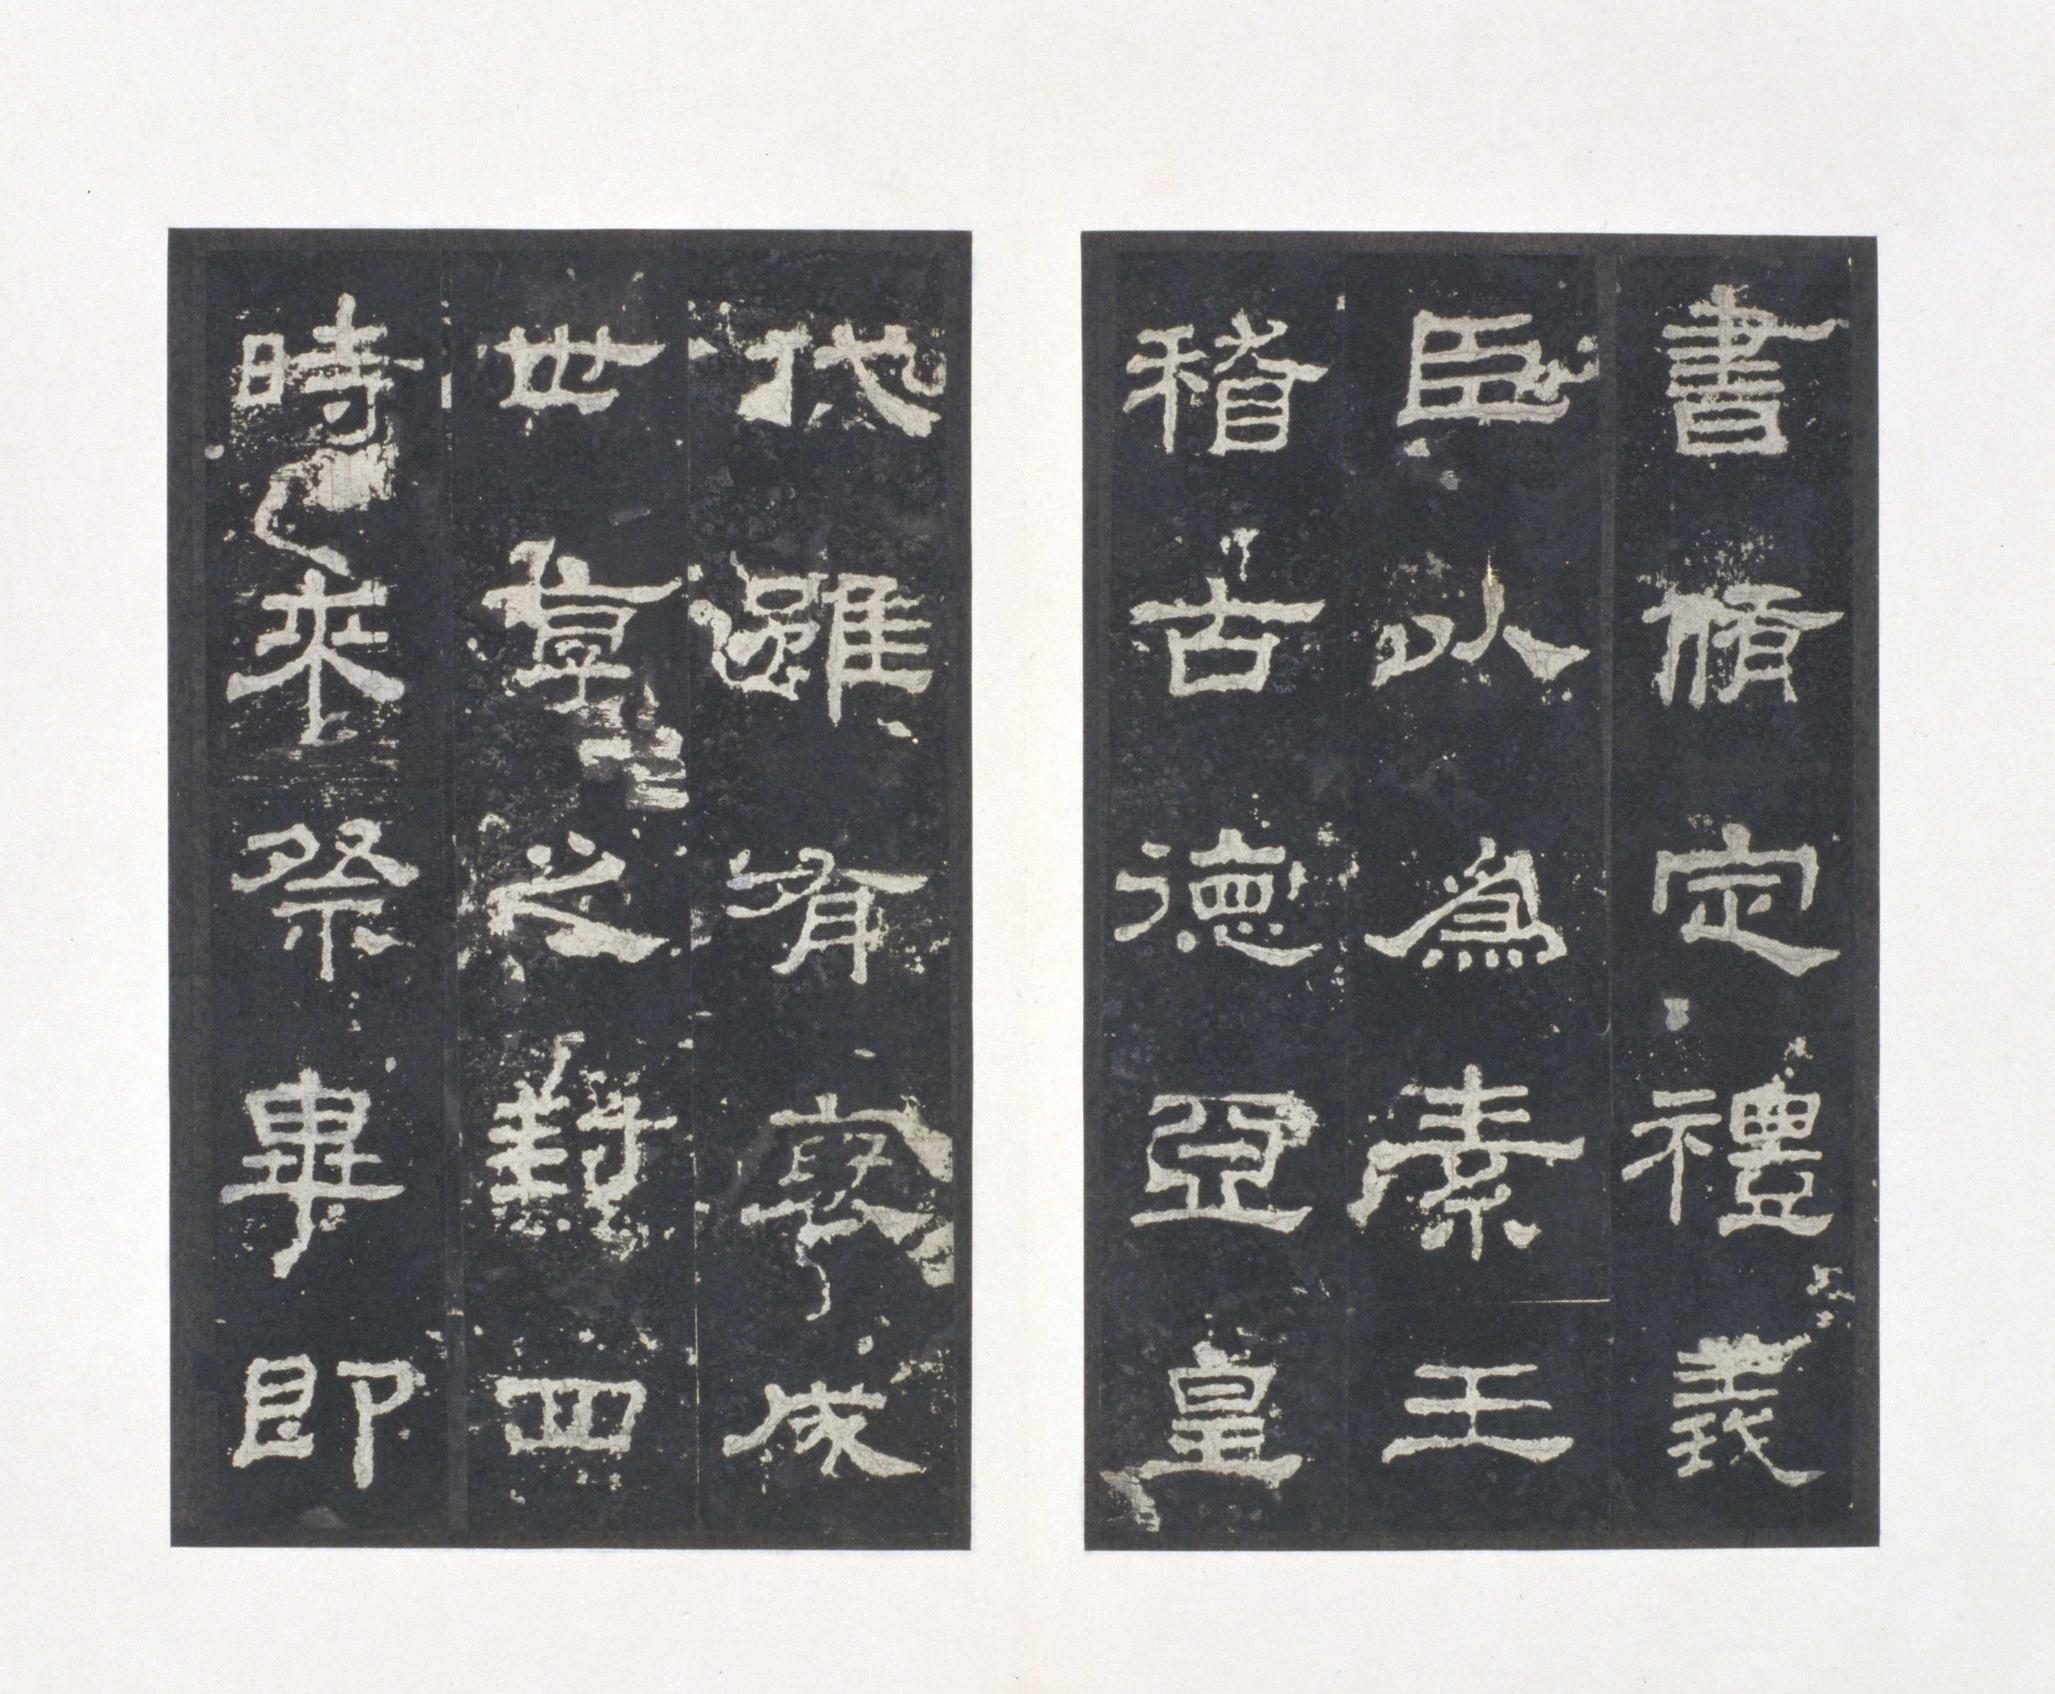 書脩定禮義
臣以為素王
稽古德亞皇
代雖有褒成
世享之封四
時來祭畢即